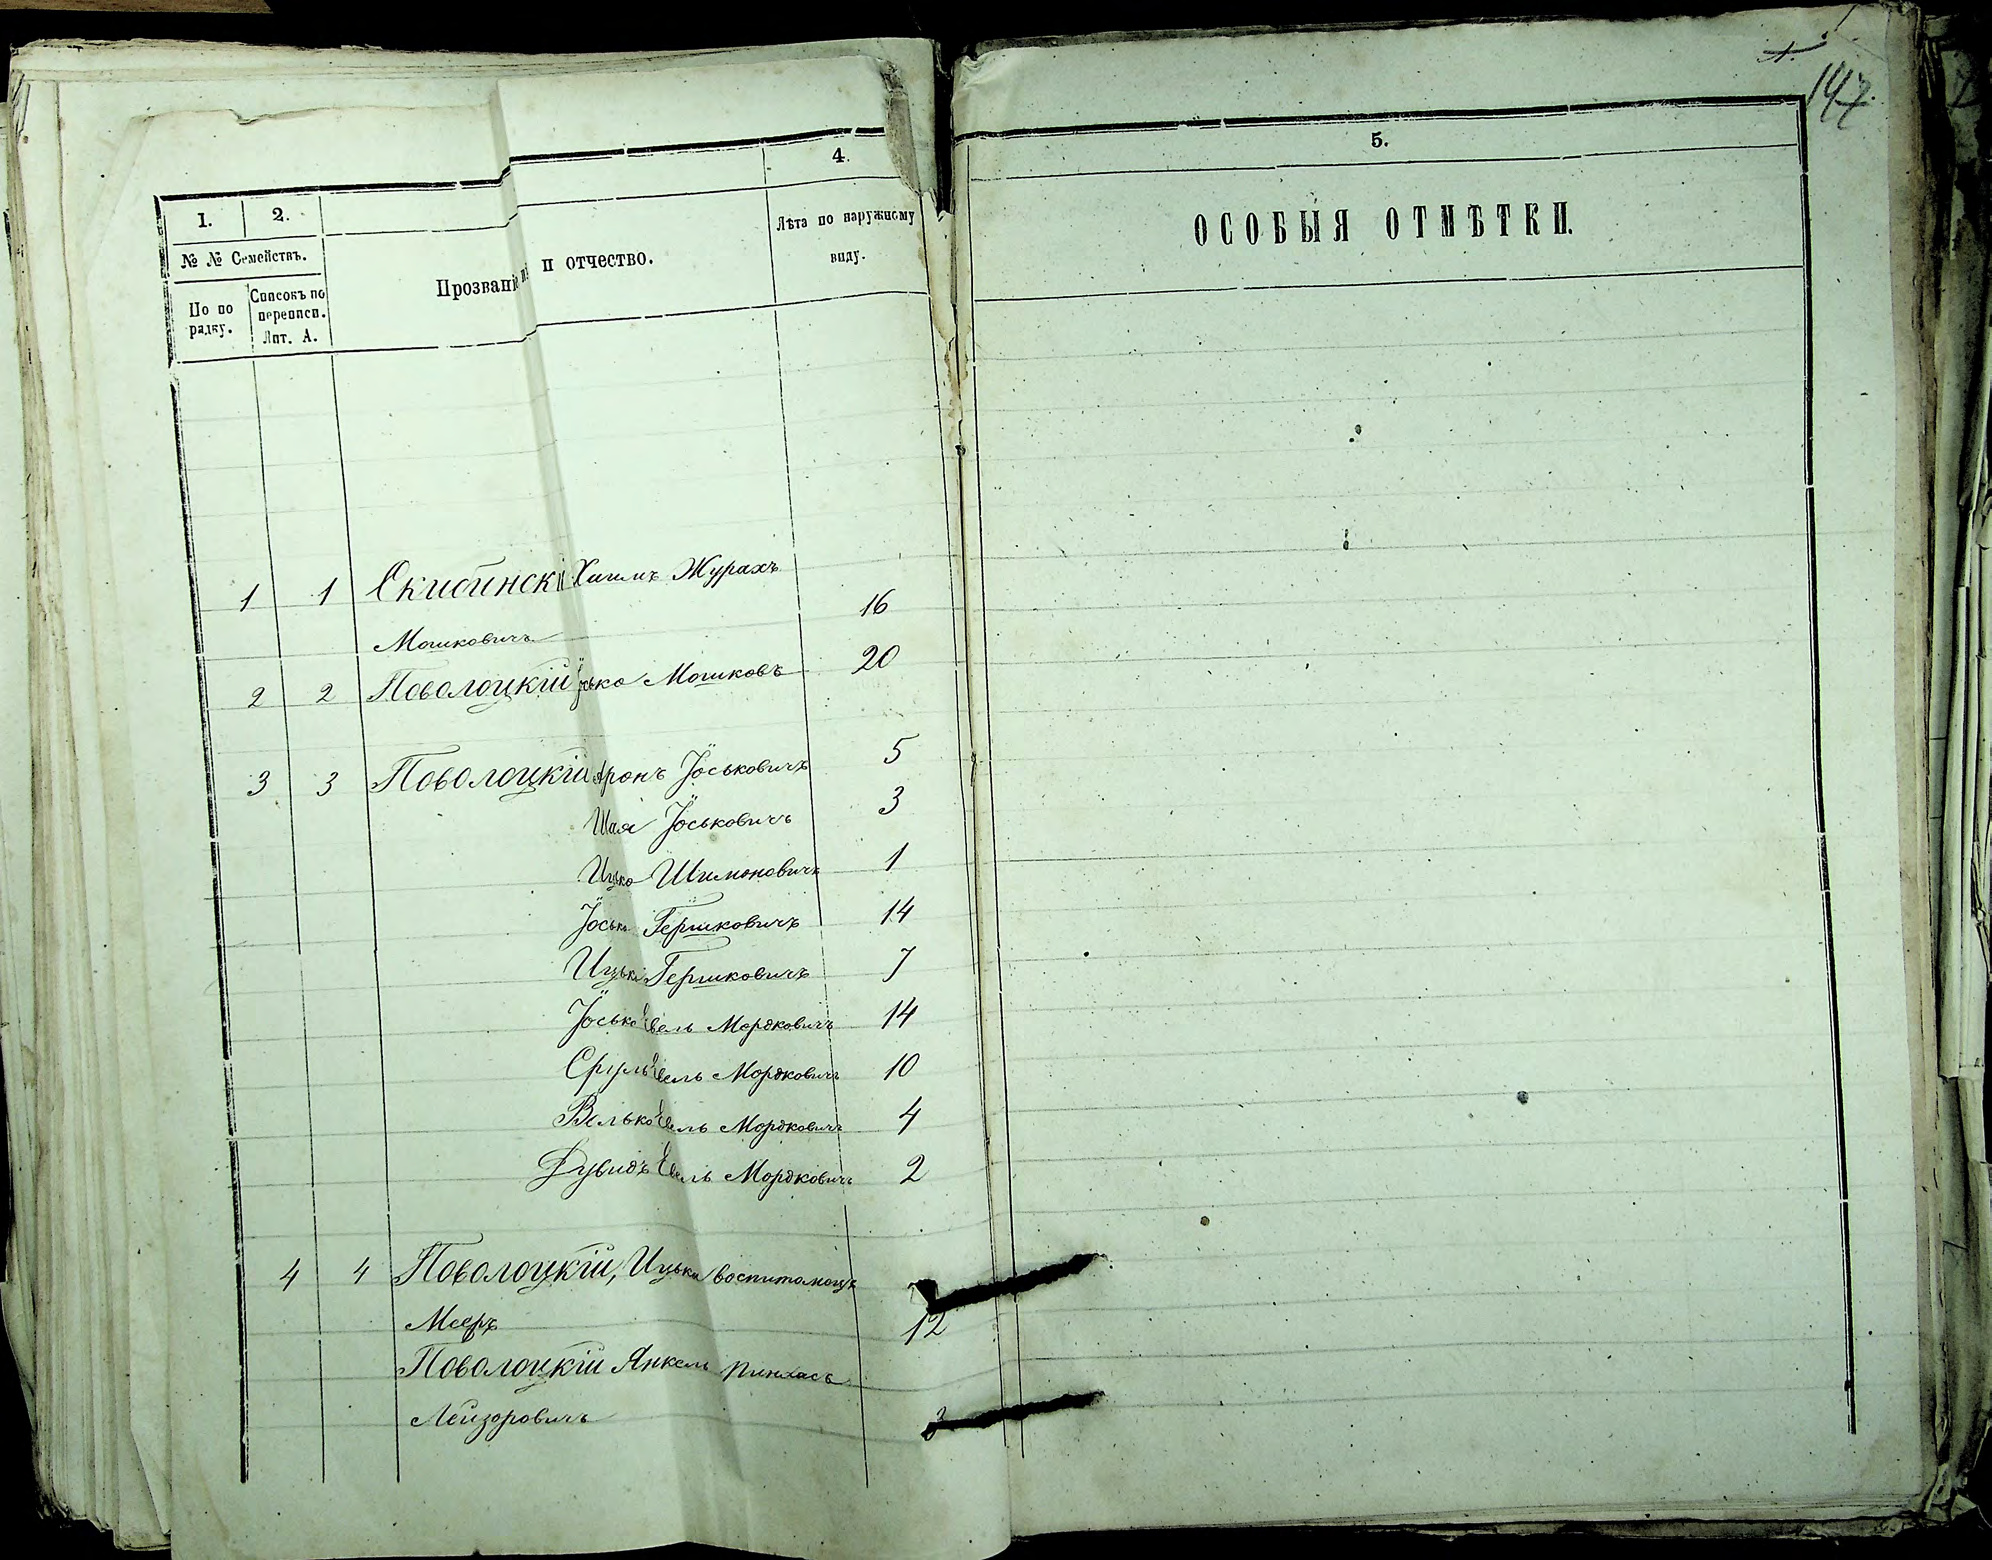 147
1. 2. 4. 5.
№ № Семействъ.
По по рядку.
Списокъ по переписи. Лит. А.
Прозваніе и отчество.
Лѣта по наружному виду.
ОСОБЫЯ ОТМѢТКИ.
1 1 Скибинскі Хаимъ Журахъ
Мошковичъ 16
2 2 Поволоцкій Мошковъ 20
3 3 Поволоцкій Аронъ Іоськовичъ 5
Шая Іоськовичъ 3
Ицко Шимоновичъ 1
Іоська Гершковичъ 14
Ицька Гершковичъ 7
Іосько Евель Мордковичъ 14
Сруль Евель Мордковичъ 10
Велько Евель Мордковичъ 4
Дувидъ Евель Мордковичъ 2
4 4 Поволоцкій, Ицька воспитомецъ
Мееръ 12
Поволоцкій Янкель Пинхасъ
Лейзоровичъ 3